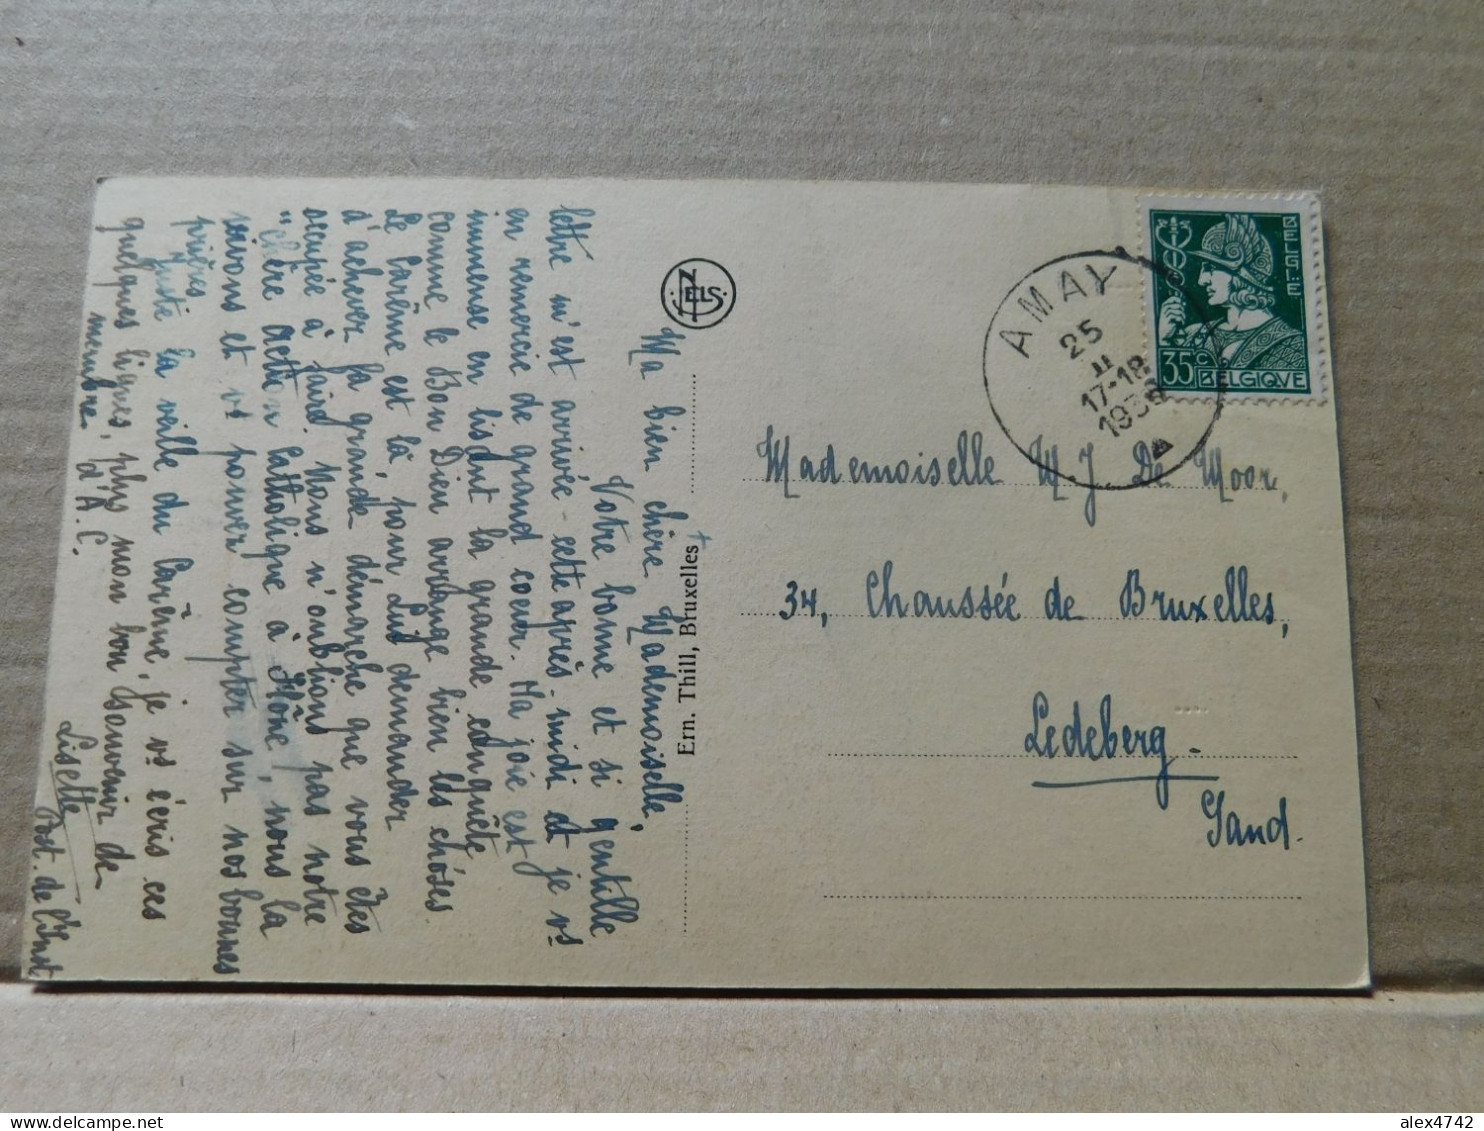 Ma bien chère Mademoiselle,
Votre bonne et si gentille
lettre m'est arrivée cette après-midi et je vs
en remercie de grand coeur. Ma joie est
immense en lisant la grande conquête
comme le Bon Dieu arrange bien les choses.
Le Carême est là pour Lui demander
d'achever la grande démarche que vous êtes
occupée à faire. Nous n'oublions pas notre
"chère action Catholique à Hône", nous la
suivons et vs pouvez compter sur nos bonnes
prières.
Juste la veille du Carême, je vs écris ces
quelques lignes, plus mon bon souvenir de
membre d'A.C.
Lisette
Post. de l'Inst
NELS
Ern. Thill, Bruxelles
BELGIE
35c
BELGIQVE
AMAY
25
II
17-18
193
Mademoiselle M J De Moor,
34, Chaussée de Bruxelles,
Ledeberg.
Gand.
alex4742